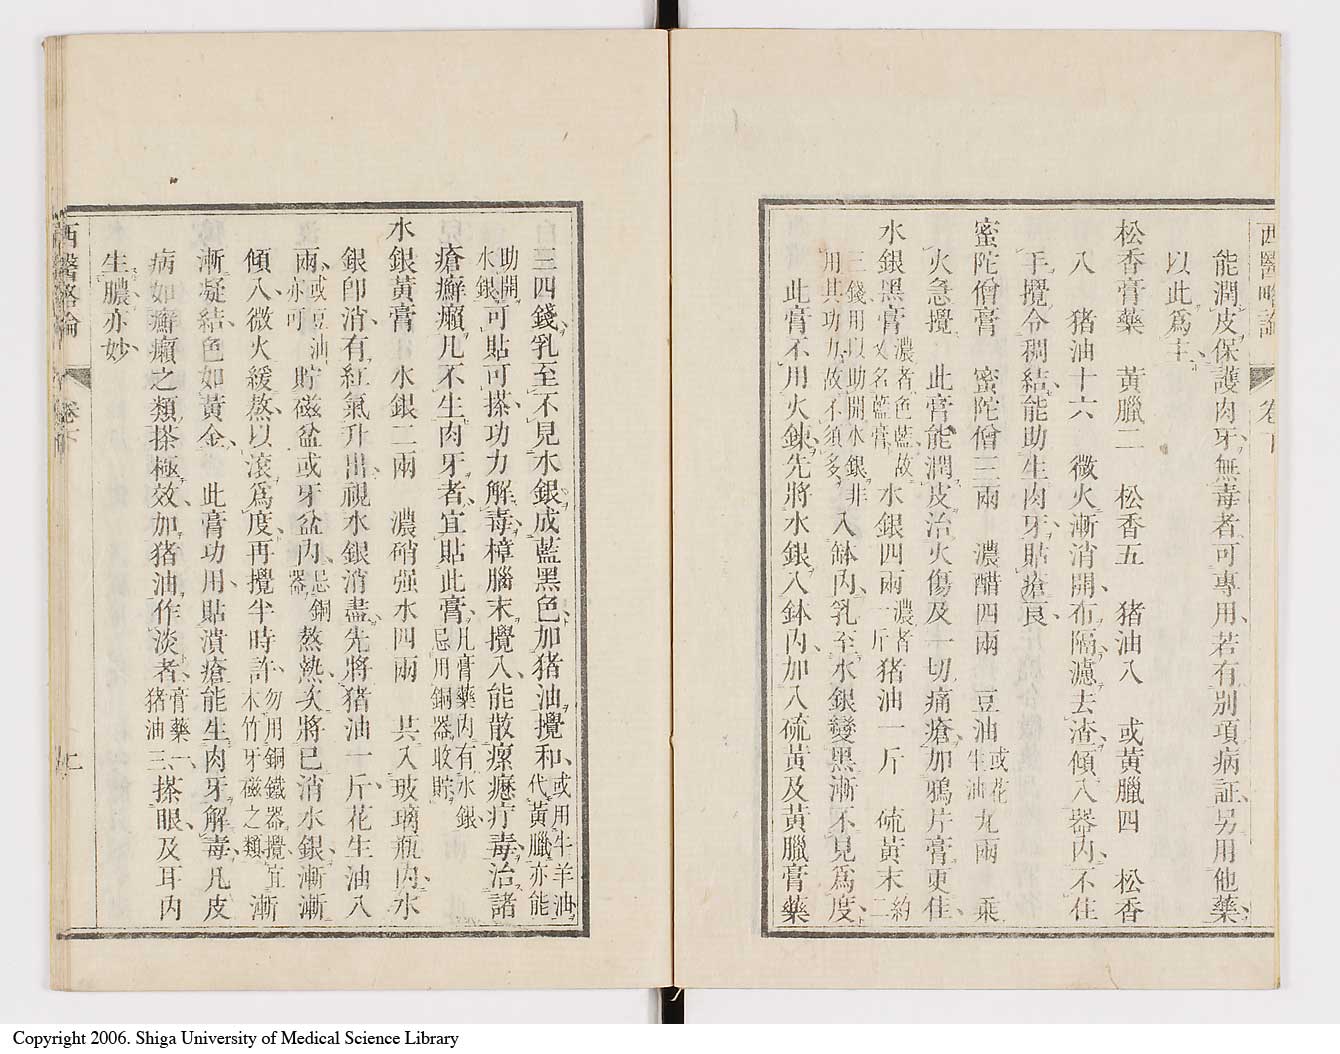 西醫略論 卷下
能潤皮保護肉牙無毒者可專用若有別項病証另用他藥
以此爲主
松香膏藥 黃臘二 松香五 猪油八 或黃臘四 松香
八 猪油十六 微火漸消開布隔濾去渣傾入器內不住
手攪令稠結能助生肉牙貼瘡良
蜜陀僧膏 蜜陀僧三兩 濃醋四兩 豆油或花生油九兩 乘
火急攪 此膏能潤皮治火傷及一切痛瘡加鴉片膏更佳
水銀黑膏濃者色藍故又名藍膏 水銀四兩濃者一斤猪油一斤 硫黃末約二
三錢用以助開水銀非用其功力故不須多入鉢內乳至水銀變黑漸不見爲度
此膏不用火鍊先將水銀入鉢內加入硫黃及黃臘膏藥
白三四錢乳至不見水銀成藍黑色加猪油攪和或用牛羊油代黃臘亦能
助開水銀可貼可搽功力解毒樟腦末攪入能散瘰癧疔毒治諸
瘡癬癩凡不生肉牙者宜貼此膏凡膏藥內有水銀忌用銅器收貯
水銀黃膏 水銀二兩 濃硝强水四兩 共入玻璃瓶內水
銀卽消有紅氣升出視水銀消盡先將猪油一斤花生油八
兩或豆油亦可 貯磁盆或牙盆內忌銅器熬熱矣將已消水銀漸漸
傾入微火緩熬以滾爲度再攪半時許勿用銅鐵器攪宜木竹牙磁之類漸
漸凝結色如黃金 此膏功用貼潰瘡能生肉牙解毒凡皮
病如癬癩之類搽極效加猪油作淡者膏藥一猪油三搽眼及耳內
生膿亦妙
西醫略論 卷下
Copyright 2006. Shiga University of Medical Science Library